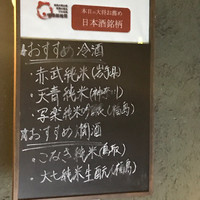 本日の大将お薦め
日本酒銘柄
おすすめ冷酒
・赤武純米(岩手県)
・天青純米(神奈川)
・写楽純米吟醸(福島)
おすすめ燗酒
・こなき純米(鳥取)
・大七純米生酛(福島)